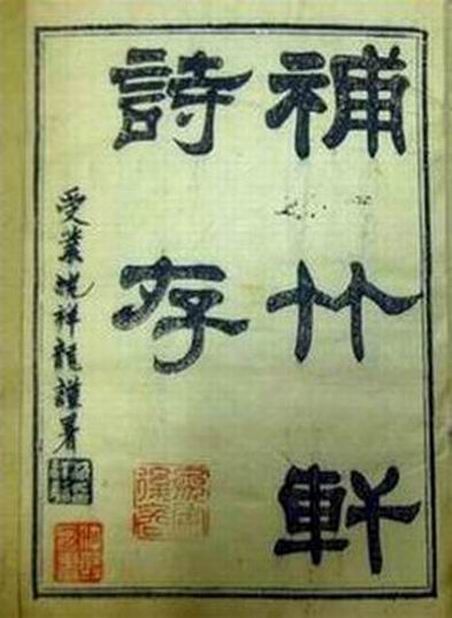 補竹軒
詩存
受業沈祥龍謹署